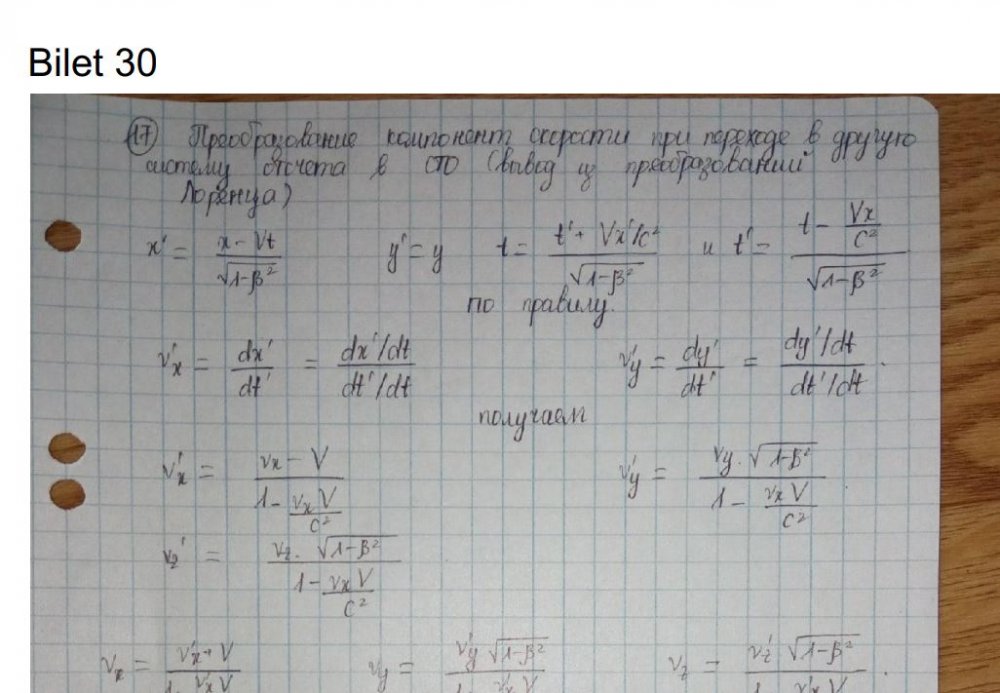 Bilet 30
17) Преобразование компонент скорости при переходе в другую
систему отсчета в СТО (вывод из преобразований
Лоренца)
x' = (x - Vt)/√(1-β²)   y' = y   t = (t' + Vx'/c²)/√(1-β²)   и t' = (t - Vx/c²)/√(1-β²)
по правилу.
v'x = dx'/dt' = (dx'/dt)/(dt'/dt)   v'y = dy'/dt' = (dy'/dt)/(dt'/dt).
получаем
v'x = (vx - V)/(1 - vxV/c²)   v'y = (vy·√(1-β²))/(1 - vxV/c²)
vz' = (vz·√(1-β²))/(1 - vxV/c²)
vx = (v'x + V)/(1- v'xV   vy = (v'y √(1-β²))/(1- v'xV   vz = (vz' √(1-β²))/(1- v'xV .